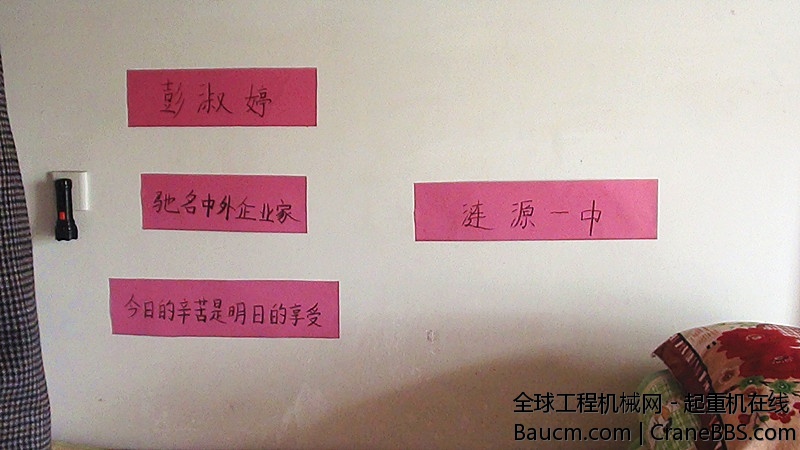 彭淑婷
驰名中外企业家
涟源一中
今日的辛苦是明日的享受
全球工程机械网 - 起重机在线
Baucm.com | CraneBBS.com